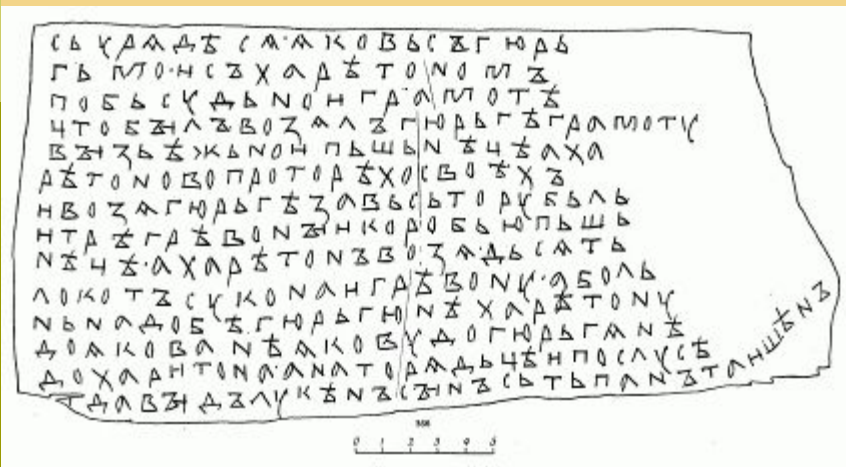 сь урѧдѣсѧ·ѧковьсъгюрь
гьмо·нсъхарѣтономъ
побьсудьнонграмотѣ
цтобъілъвозѧлъгюрьгѣграмоту
въізьѣжьнонпьшьнѣцѣѧха
рѣтоновопроторѣхосвоѣхъ
нвозѧгюрьгѣзавьсьторубьль
нтрѣгрѣвонъінкоробьюпьшь
нѣцѣ·ахарѣтонъвозѧ·дьсѧть
локотъсуконангрѣвону·аболь
ньнадобѣ·гюрьгюнѣхарѣтону
доѧкованѣѧковудогюрьгѧнѣ
дохарнтона·анаторѧдьцѣнпослусѣ
тдавъідълукѣнъсъінъсьтьпанътаншѣнъ
366
0 1 2 3 4 5